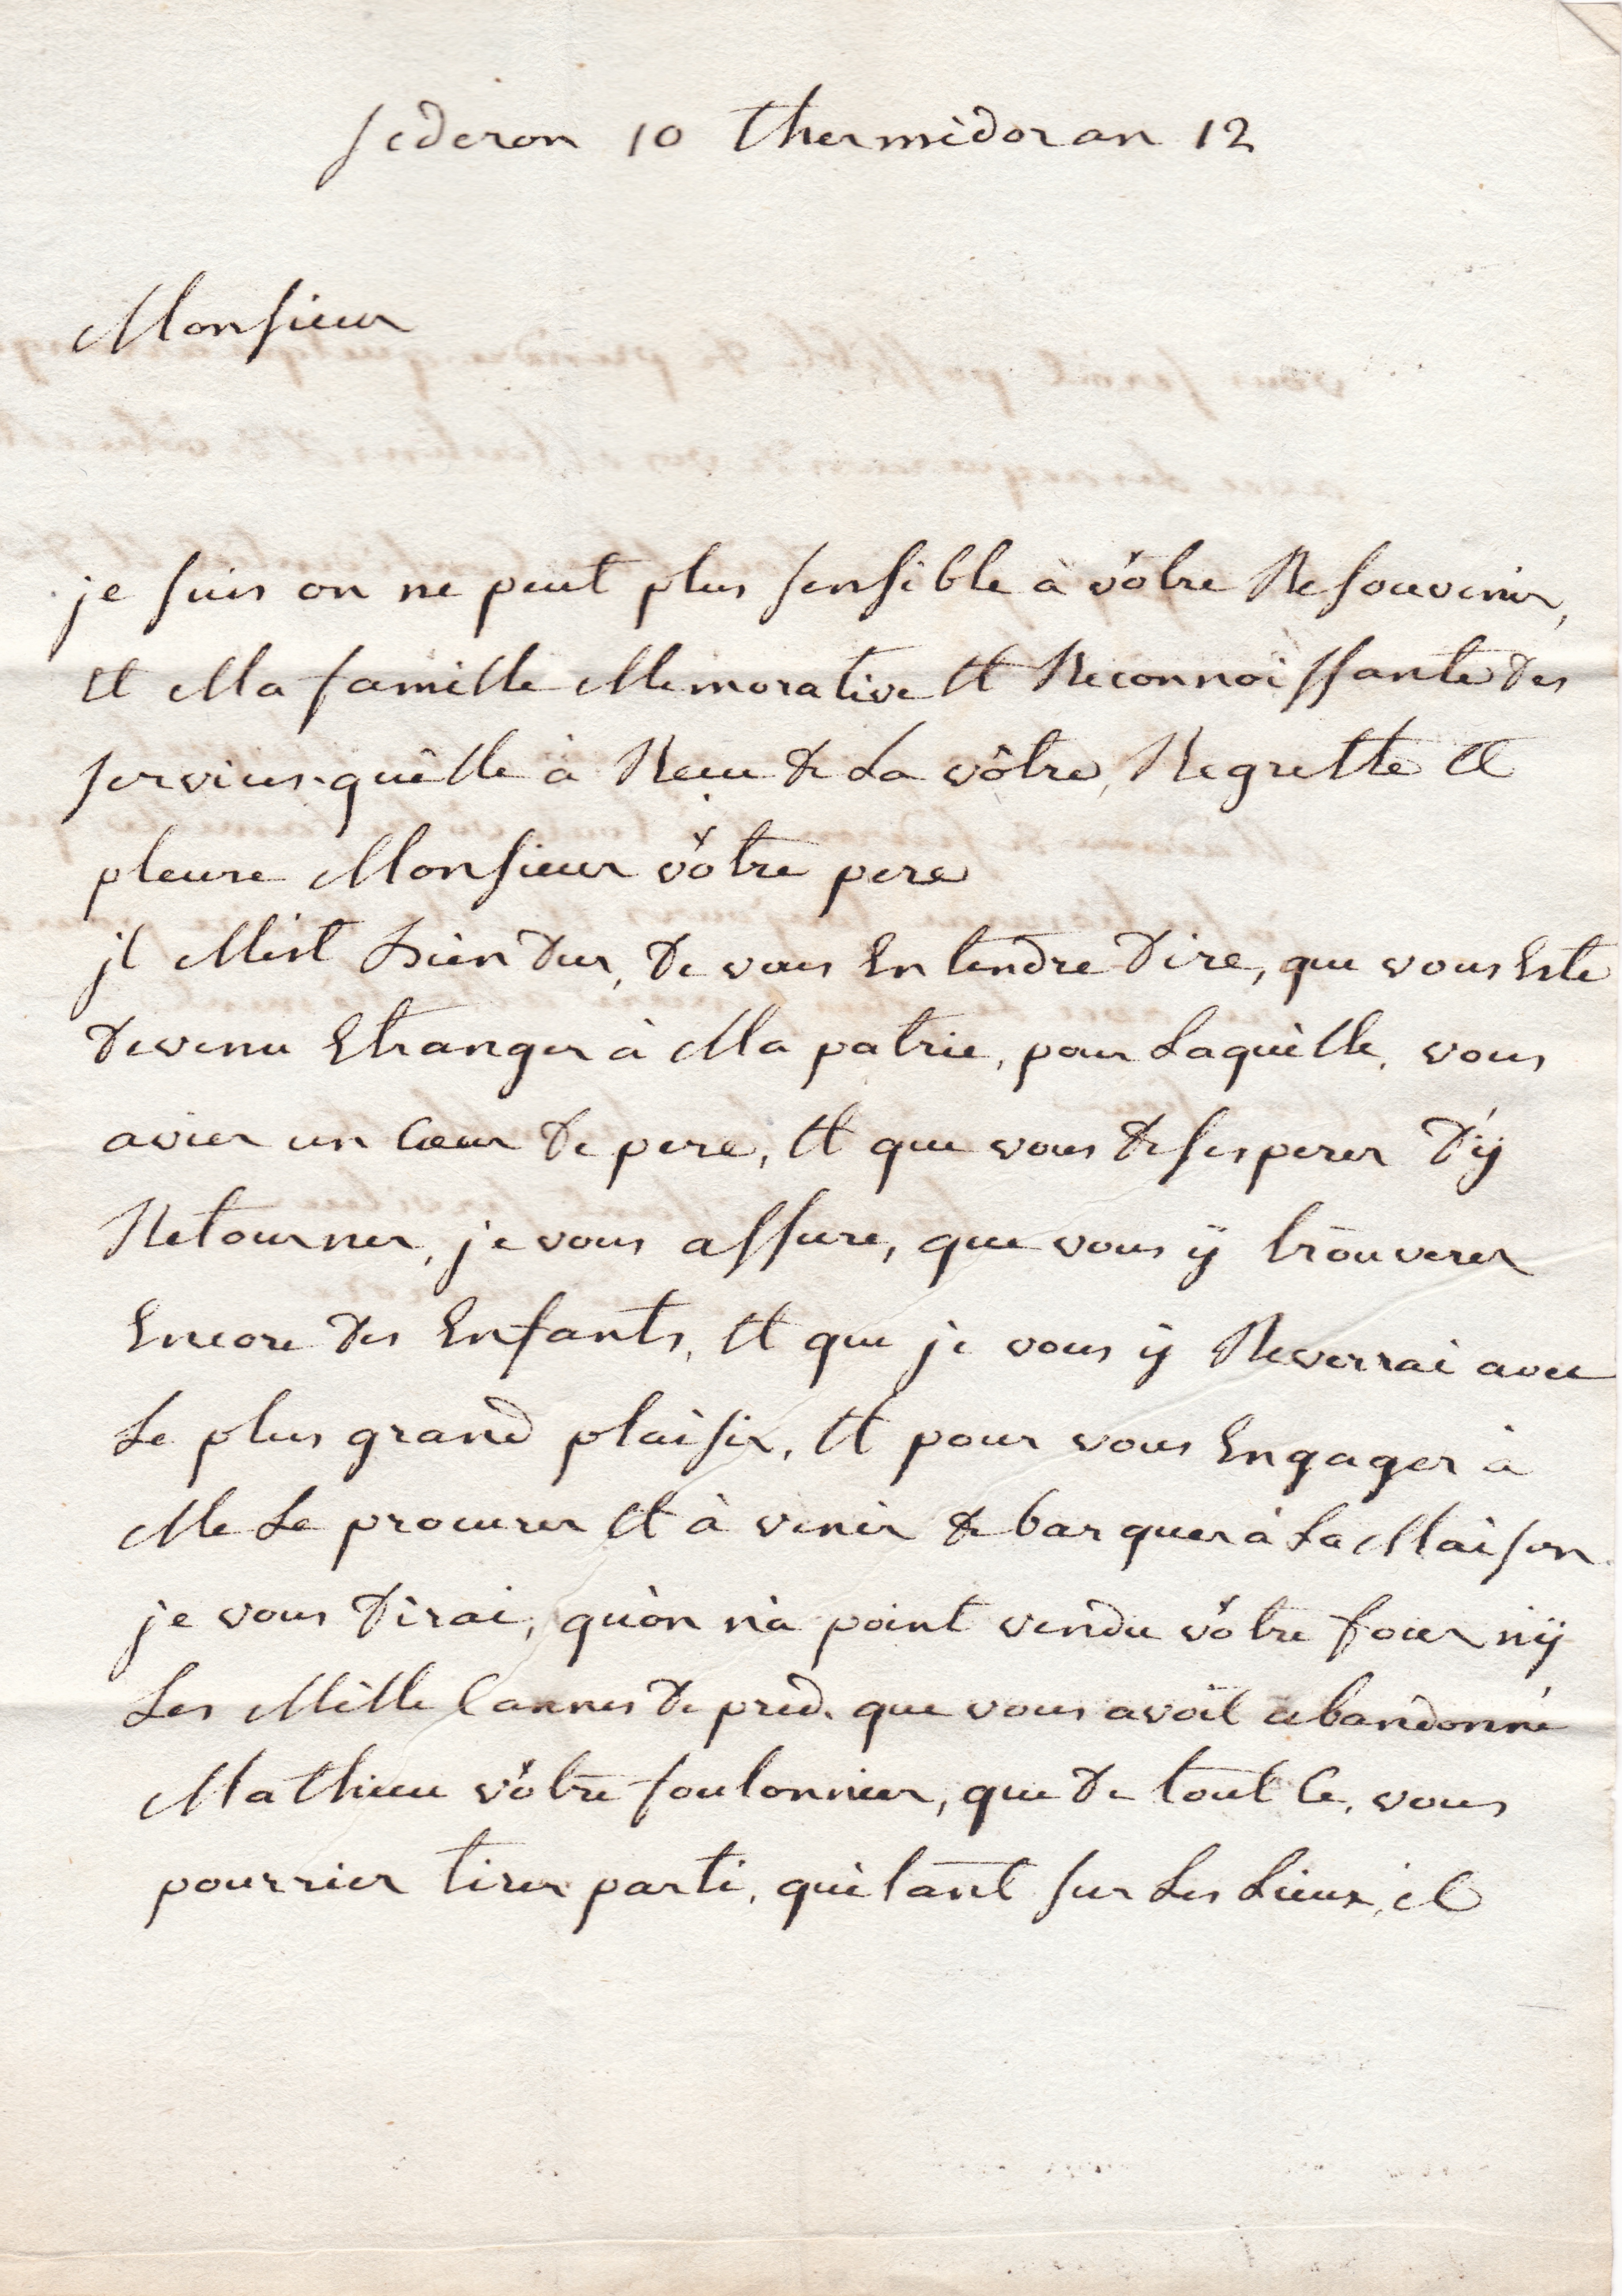 sederon 10 thermidor an 12
Monsieur
je suis on ne peut plus sensible à vôtre Resouvenir,
et Ma famille Memorative et Reconnoissante des
services quèlle à Reçu de La vôtre, Regrette et
pleure Monsieur vôtre pere
jl Mest bien dur, de vous Entendre dire, que vous Este
devenu Etranger à Ma patrie, pour Laquèlle, vous
aviez un Cœur de pere, et que vous desesperez d'ÿ
Retourner, je vous assure, que vous ÿ trouverez
Encore des Enfants, et que je vous ÿ Reverrai avec
Le plus grand plaisir, et pour vous Engager à
Me Le procurer et à venir debarquer à La Maison
je vous dirai, quòn nà point vendu vôtre four nÿ
Les Mille Cannes de pred. que vous avoit abandonné
Mathieu vôtre foulonnier, que de tout Ce, vous
pourriez tirer parti, quètant sur Les Lieux, il